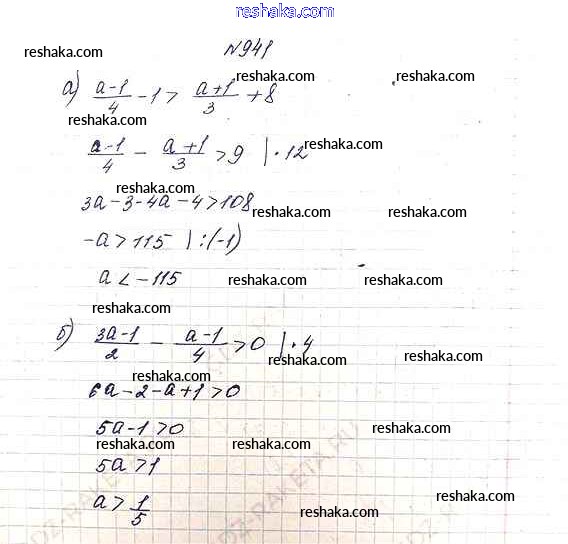 reshaka.com
№941
reshaka.com reshaka.com
а) (a-1)/4 - 1 > (a+1)/3 + 8
reshaka.com
(a-1)/4 - (a+1)/3 > 9 | · 12
reshaka.com
reshaka.com
3a - 3 - 4a - 4 > 108
reshaka.com reshaka.com
-a > 115 | : (-1)
a < -115
reshaka.com reshaka.com
reshaka.com
б) (3a-1)/2 - (a-1)/4 > 0 | · 4
reshaka.com reshaka.com
reshaka.com
6a - 2 - a + 1 > 0
5a - 1 > 0
reshaka.com
reshaka.com reshaka.com
5a > 1
a > 1/5
reshaka.com
reshaka.com